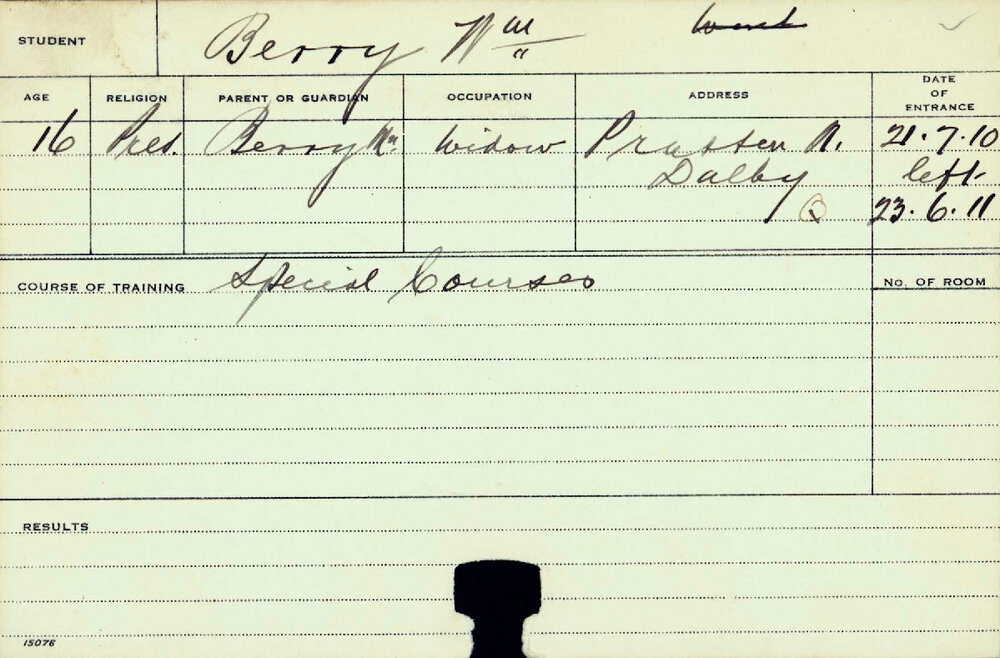 STUDENT Berry Wm
AGE RELIGION PARENT OR GUARDIAN OCCUPATION ADDRESS DATE OF ENTRANCE
16 Pres. Berry Widow Pratten 21.7.10
Dalby left
Q 23.6.11
COURSE OF TRAINING Special Courses No. OF ROOM
RESULTS
15076